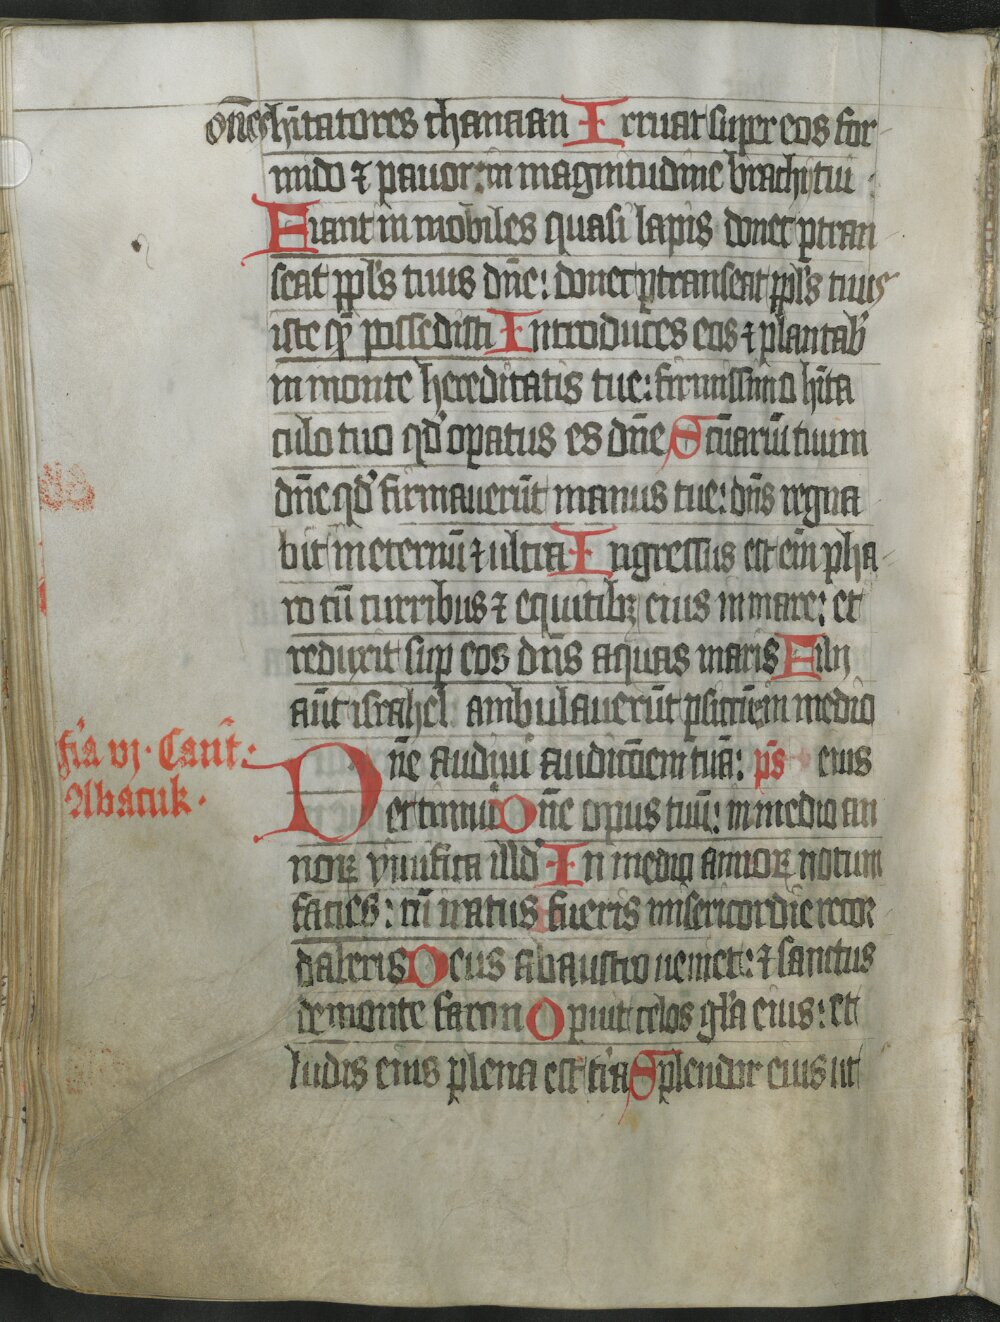 om̄es hītatores chanaan Irruat super eos for
mido ⁊ pauor: in magnitudine brachij tui
Fiant in mobiles quasi lapis donec ꝑtran
seat ppl̄s tuus dn̄e: donec ꝑtranseat ppl̄s tuus
iste quē possedisti Introduces eos ⁊ plantab̄
in monte hereditatis tue: firmissimo hīta
culo tuo qd̓ oꝑatus es dn̄e Sc̄uariū tuum
dn̄e qd̓ firmauerūt manus tue: dn̄s regna
bit in eternū ⁊ ultra Ingressus est em̄ pha
ro cū curribus ⁊ equitibꝫ eius in mare: et
reduxit suꝑ eos dn̄s aquas maris Filij
aūt israhel ambulauerūt ꝑ siccū in medio
fīa vj. Cant̄:
Abacuk.
Dn̄e audiui auditōem tuā: ꝑs eius
et timui Dn̄e opus tuū: in medio an
noꝝ viuifica illd̓ In medio annoꝝ notum
facies: cū iratus fueris misericordie recor
daberis Deus ab austro ueniet: ⁊ sanctus
de monte faron Oꝑuit celos gl̄a eius: et
laudis eius plena est t̄ra Splendor eius ut